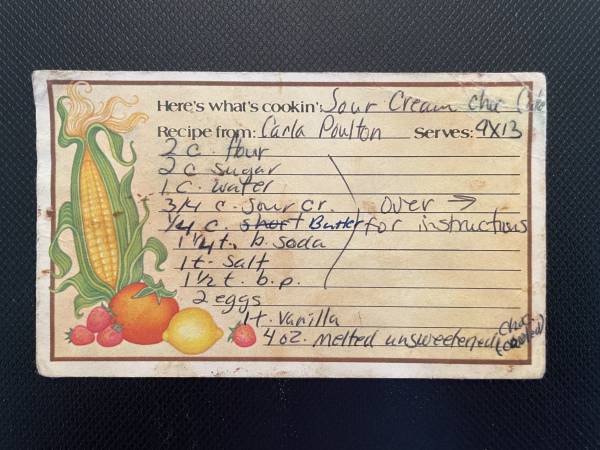 Here's what's cookin': Sour Cream cho. Cake
Recipe from: Carla Poulton Serves: 9x13
2 c. flour
2 c sugar
1 c. water
3/4 c. sour cr. over →
1/4 c. short Butter for instructions
1 1/4 t. b. soda
1 t. salt
1 1/2 t. b.p.
2 eggs
1 t. vanilla
4 oz. melted unsweetened choc.
(cooled)